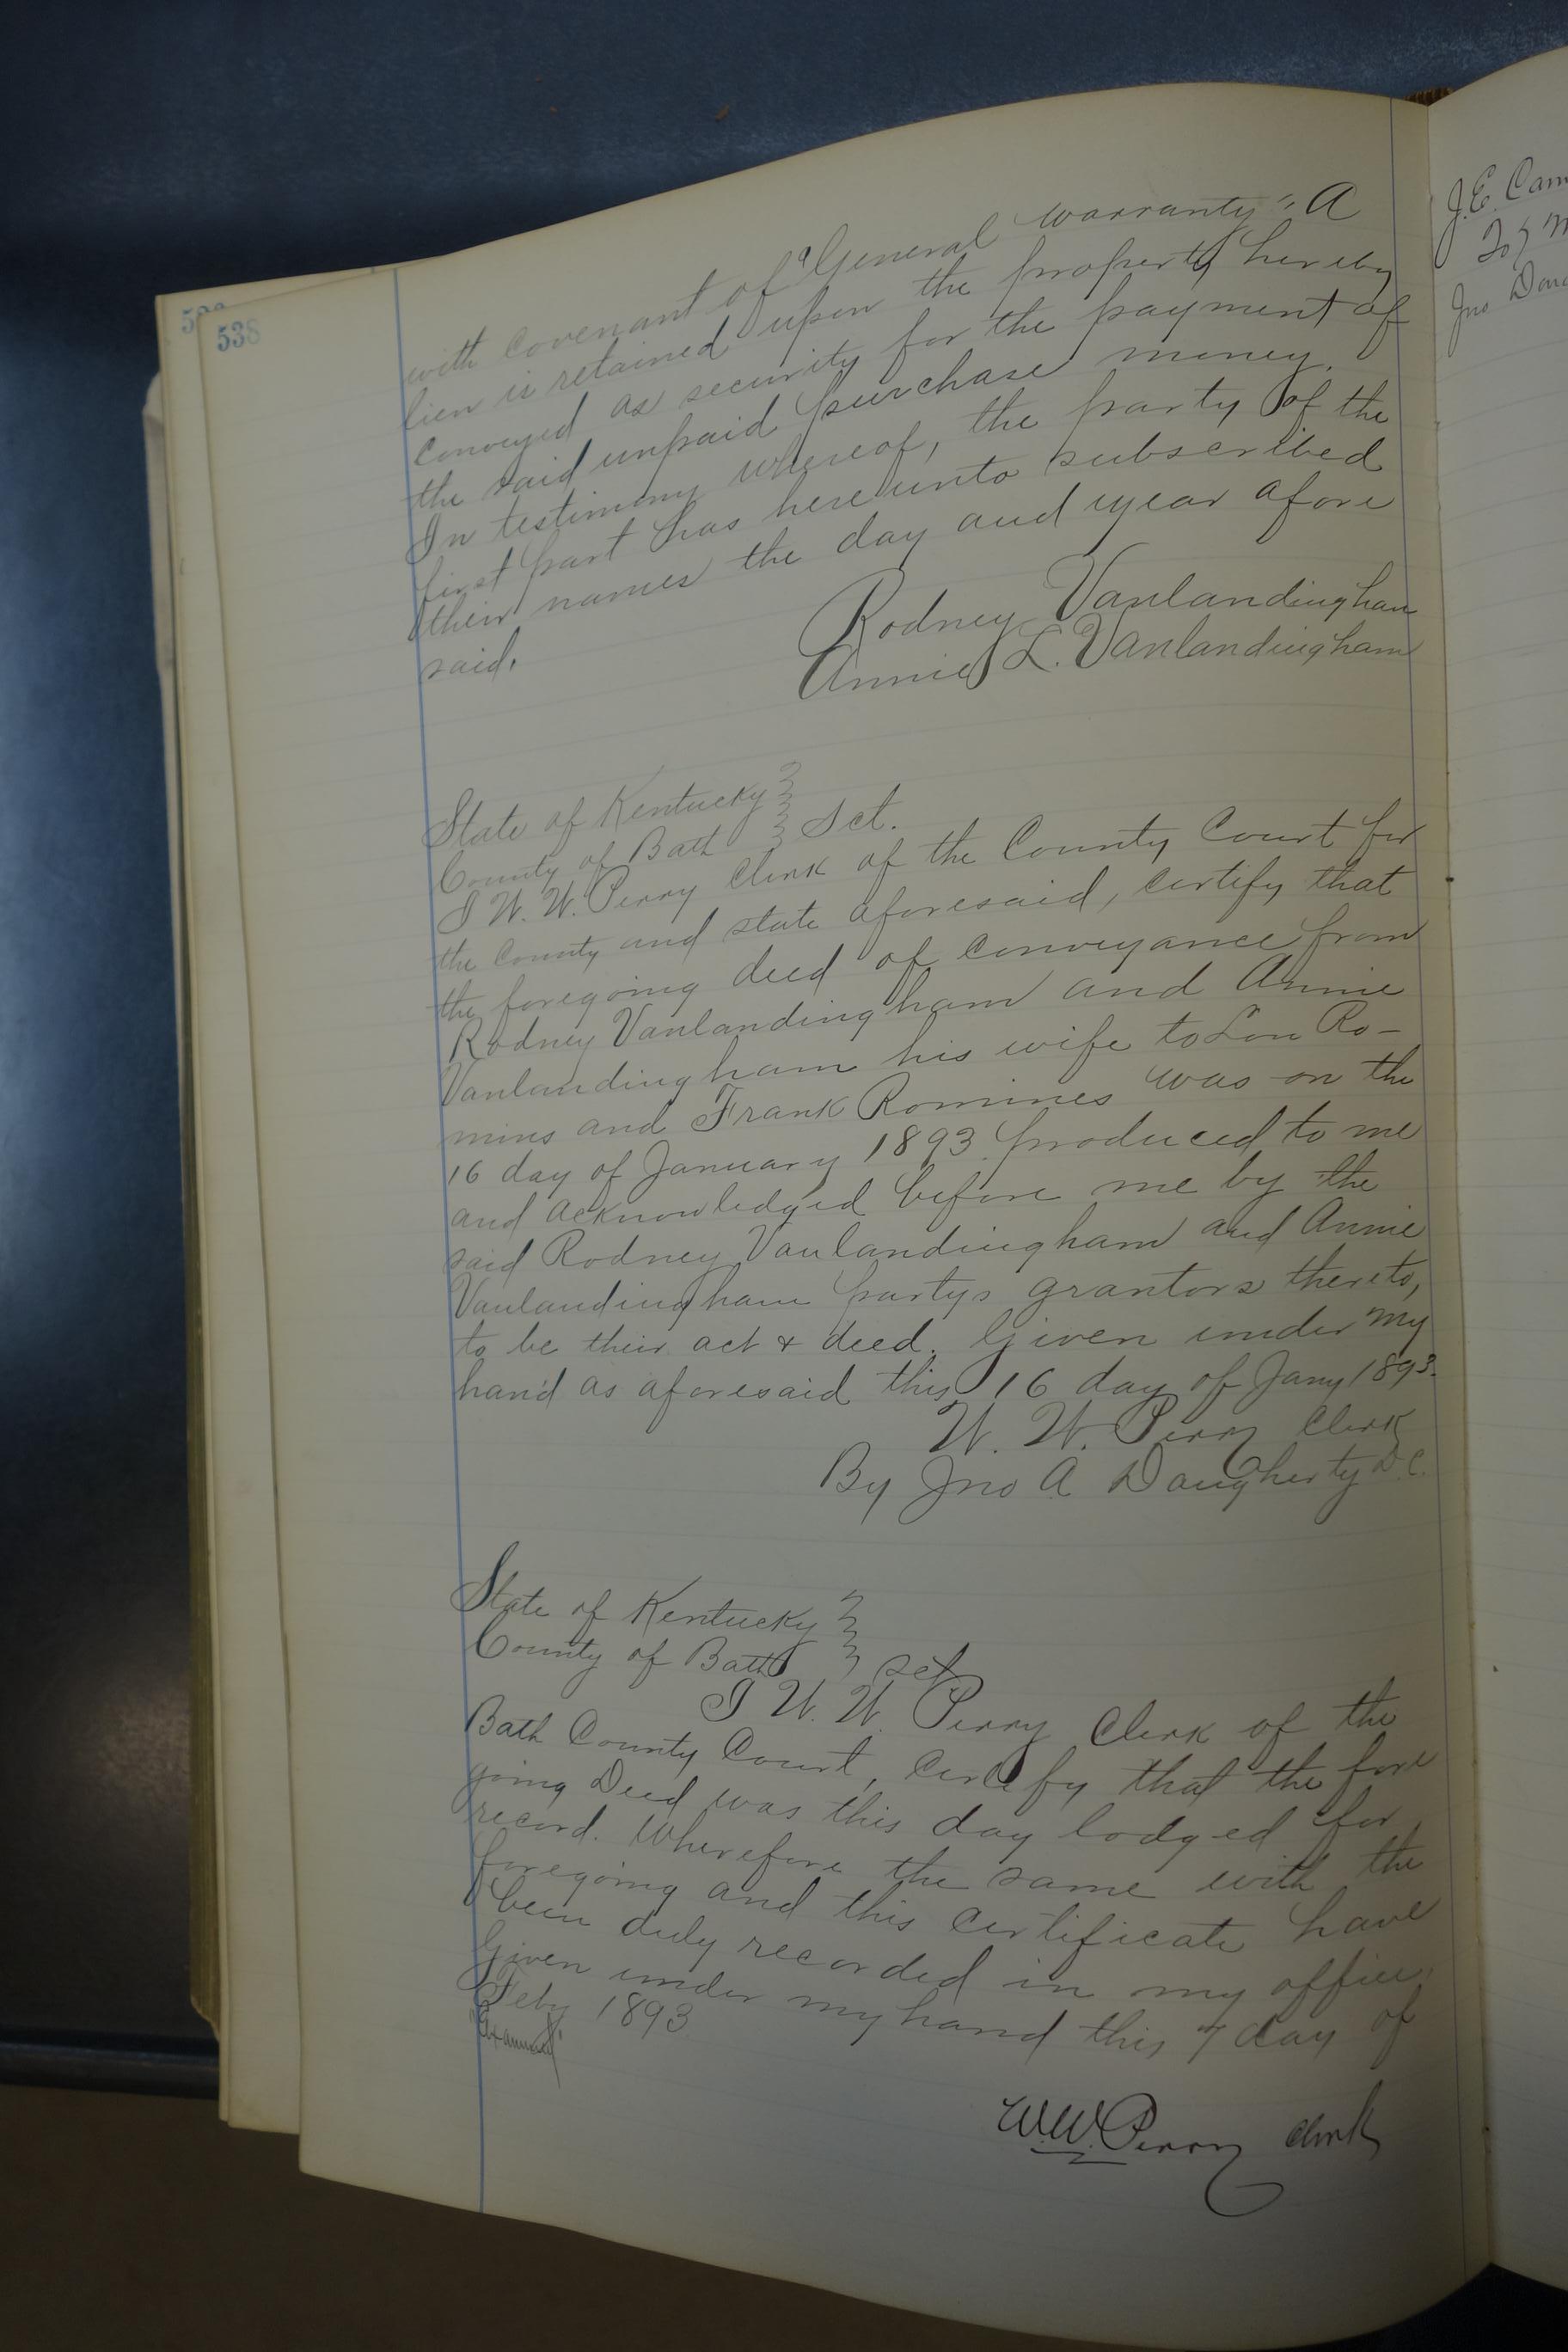 538
with covenant of "General warranty". A
lien is retained upon the property hereby
conveyed as security for the payment of
the said unpaid purchase money.
In testimony whereof, the party of the
first part has hereunto subscribed
their names the day and year afore
said.
Rodney Vanlandingham
Annie L. Vanlandingham
State of Kentucky
County of Bath Sct.
I W. W. Perry Clerk of the County Court for
the County and state aforesaid, certify that
the foregoing deed of conveyance from
Rodney Vanlandingham and Annie
Vanlandingham his wife to Lon Ro-
mins and Frank Romines was on the
16 day of January 1893. produced to me
and acknowledged before me by the
said Rodney Vanlandingham and Annie
Vanlandingham partys grantors thereto,
to be their act & deed. Given under my
hand as aforesaid this 16 day of Jany 1893.
W. W. Perry Clerk
By Jno A Daugherty D.C.
State of Kentucky
County of Bath sct
I W. W. Perry Clerk of the
Bath County Court, certify that the fore
going Deed was this day lodged for
record. Wherefore the same with the
foregoing and this certificate have
been duly recorded in my office.
Given under my hand this 7 day of
Feby 1893
"Examined"
W.W. Perry Clerk
J.E. Cam
To
Jno